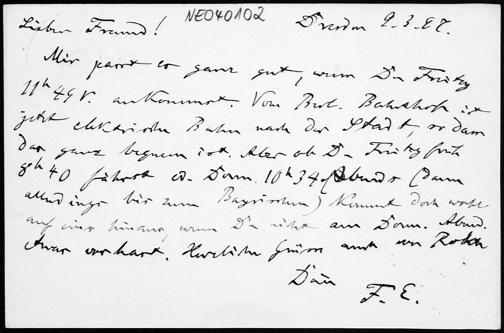 Lieber Freund! NEO40102 Dresden 9.3.27.
Mir passt es ganz gut, wenn Du Freitag
11h 49 V. ankommst. Vom Bahnhofe ist
jetzt elektrische Bahn nach der Stadt, so dass
das ganz bequem ist. Aber ob Du Freitag früh
8h 40 fährst od. Donn. 10h 34 Abends (dann
allerdings bis zum Bayrischen) kommt doch wohl
auf eins hinaus, wenn Du nicht am Donn. Abend
etwas vorhast. Herzliche Grüsse auch von
Dein
F. E.